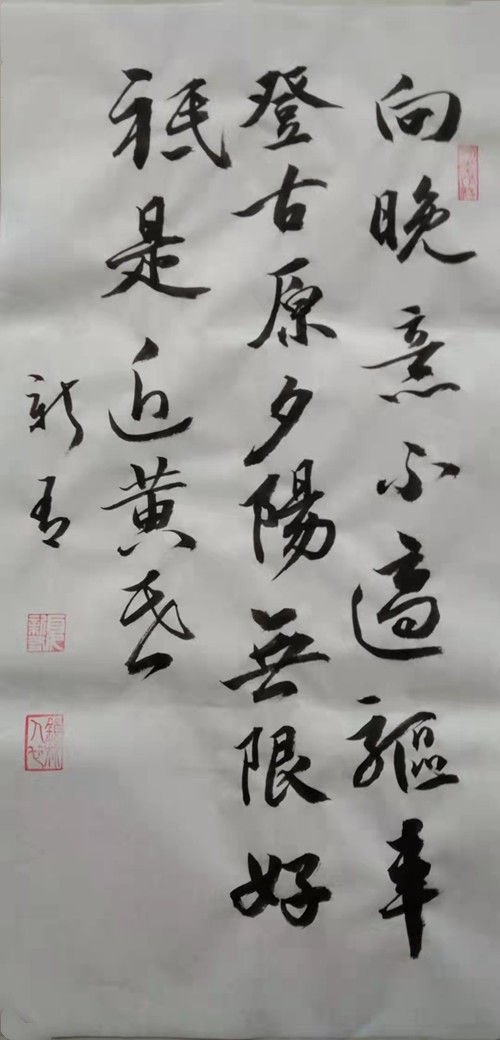 向晚意不適驅車
登古原夕陽無限好
祇是近黃昏